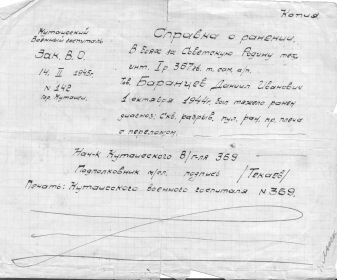 Копия
Кутаисский
Военный госпиталь
Зак. В. О.
14. II 1945г.
N 142
гор. Кутаиси.
Справка о ранении.
В боях за Советскую Родину тех.
инт. I р 367 тб. т. сам. ап.
тов. Баранцев Даниил Иванович
1 октября 1944г. был тяжело ранен
диагноз: Скв. разрыв. пул. ран. пр. плеча
с переломом.
Нач-к Кутаисского В/г-ля 369
Подполковник м/сл. подпись /Текаев/
Печать: Кутаисского военного госпиталя N 369.